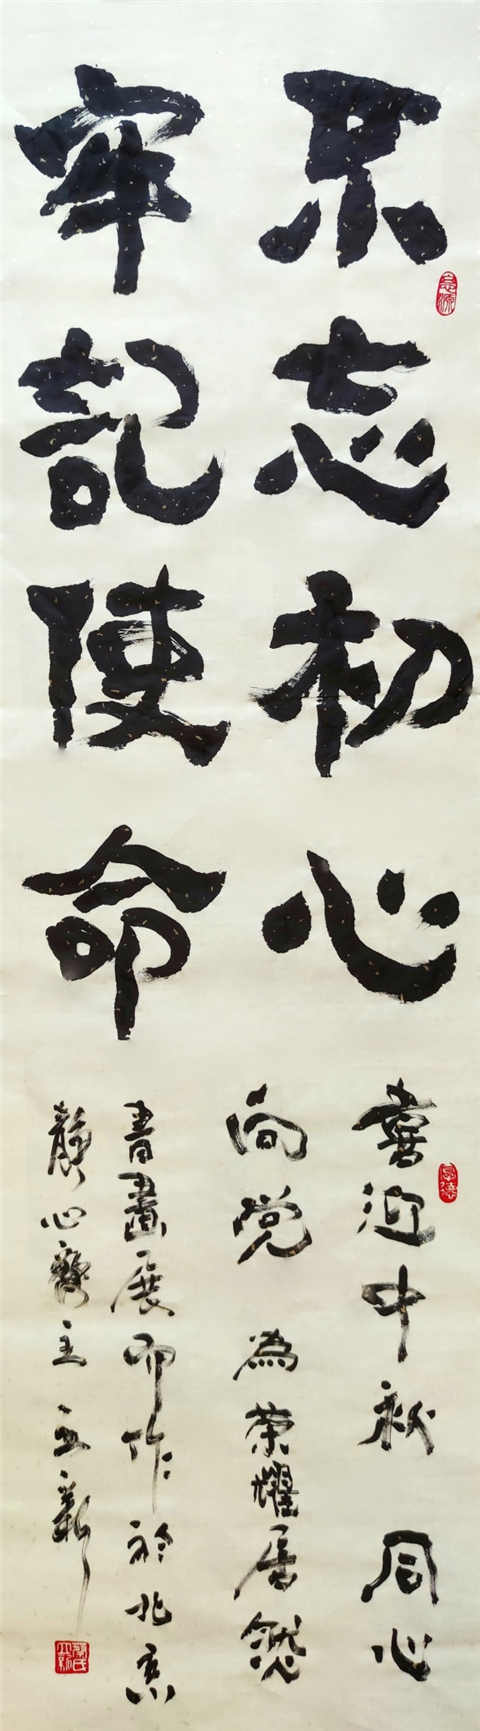 不忘初心
牢記使命
喜迎中秋 同心
向党 為荣耀居然
書畫展而作於北京
靜心齋主立新
厚德